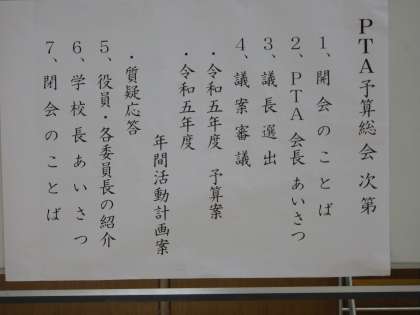 PTA予算総会次第
1、開会のことば
2、PTA会長あいさつ
3、議長選出
4、議案審議
・令和五年度 予算案
・令和五年度
年間活動計画案
・質疑応答
5、役員・各委員長の紹介
6、学校長あいさつ
7、閉会のことば